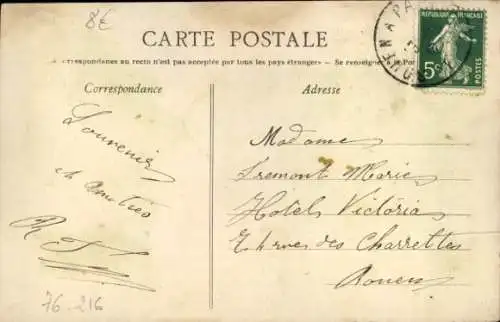 8€
CARTE POSTALE
La Correspondance au recto n'est pas acceptée par tous les pays étrangers — Se renseigner à la Poste
Correspondance
Adresse
REPUBLIQUE FRANÇAISE
5c
POSTES
ROUEN A PA
Souvenir
et Amitiés
Madame
Tremont Marie
Hotel Victoria
rue des Charrettes
Rouen
76-216